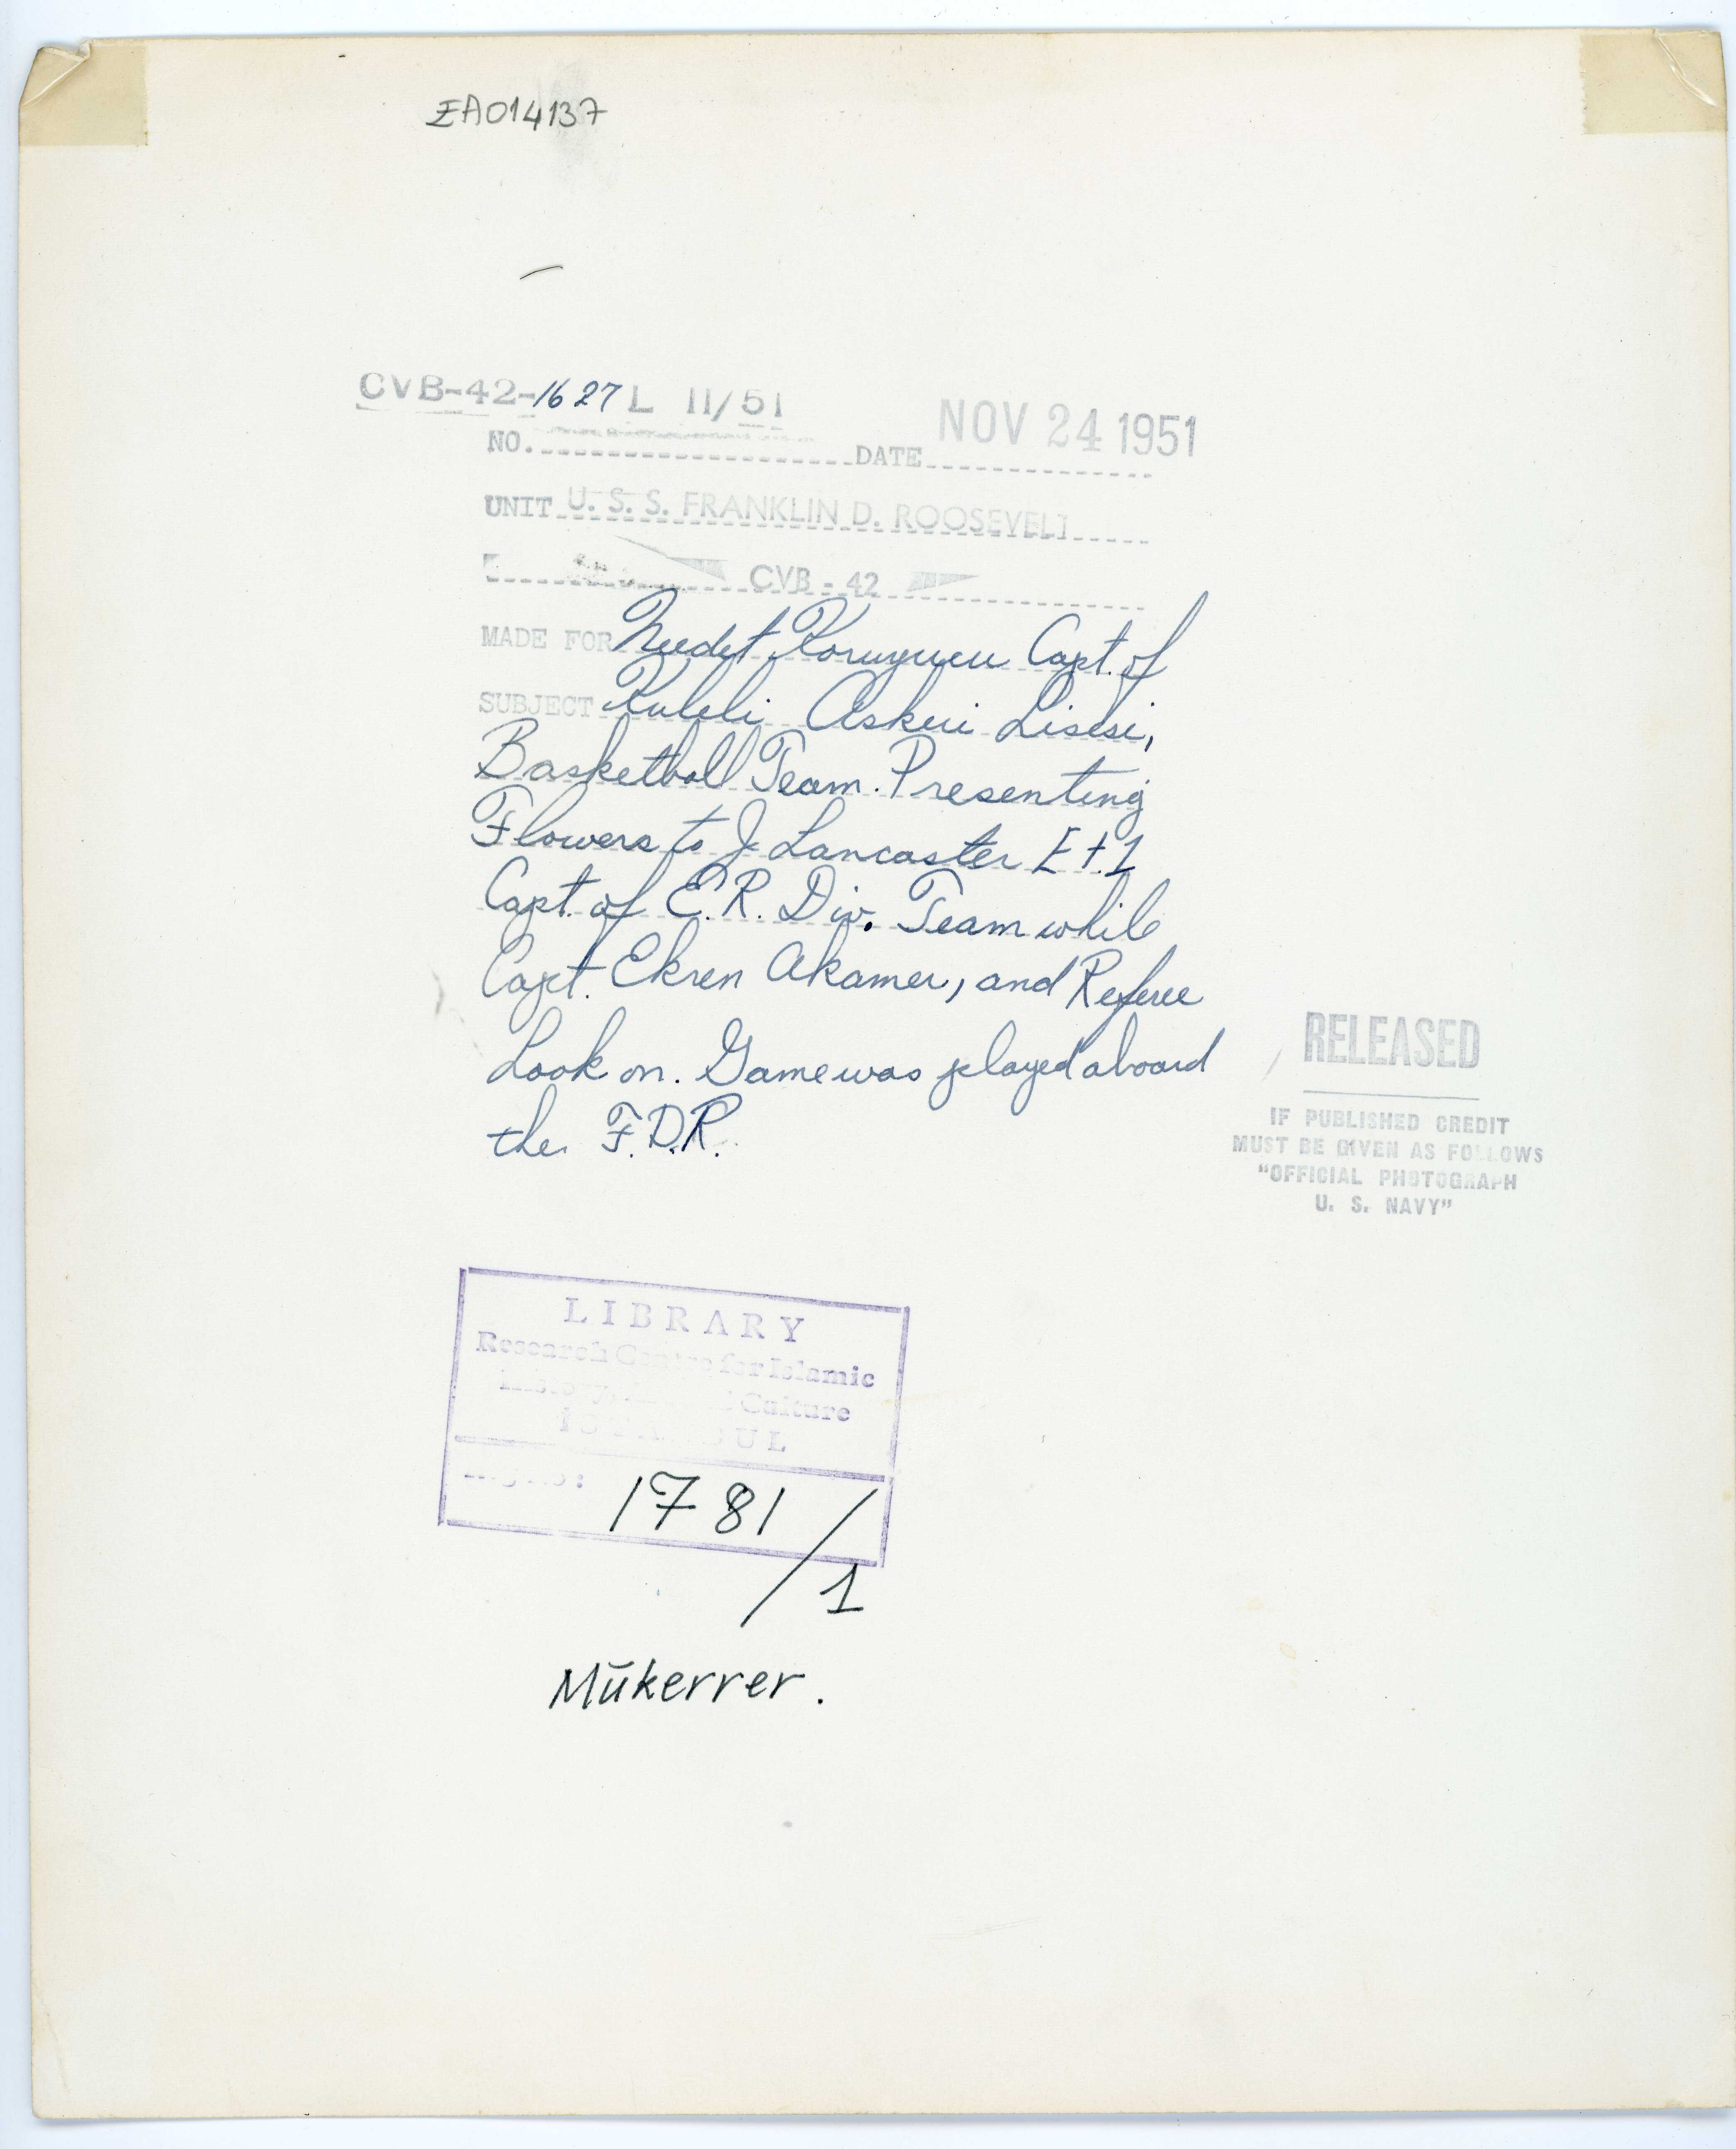 ZA014137
CVB-42-1627 L 11/51
NOV 24 1951
NO. DATE
UNIT U. S. S. FRANKLIN D. ROOSEVELT
CVB - 42
MADE FOR Needet Koruyucu Capt. of
SUBJECT Kuleli Askeri Lisesi,
Basketball Team. Presenting
Flowers to J Lancaster Et.1
Capt. of E.R. Div. Team while
Capt. Ekren Akamer, and Referee
Look on. Game was played aboard
the F.D.R.
RELEASED
IF PUBLISHED CREDIT
MUST BE GIVEN AS FOLLOWS
"OFFICIAL PHOTOGRAPH
U. S. NAVY"
LIBRARY
Research Centre for Islamic
History, Culture
ISTANBUL
1781/1
Mükerrer.